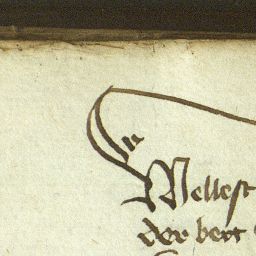 Mellest
der bert